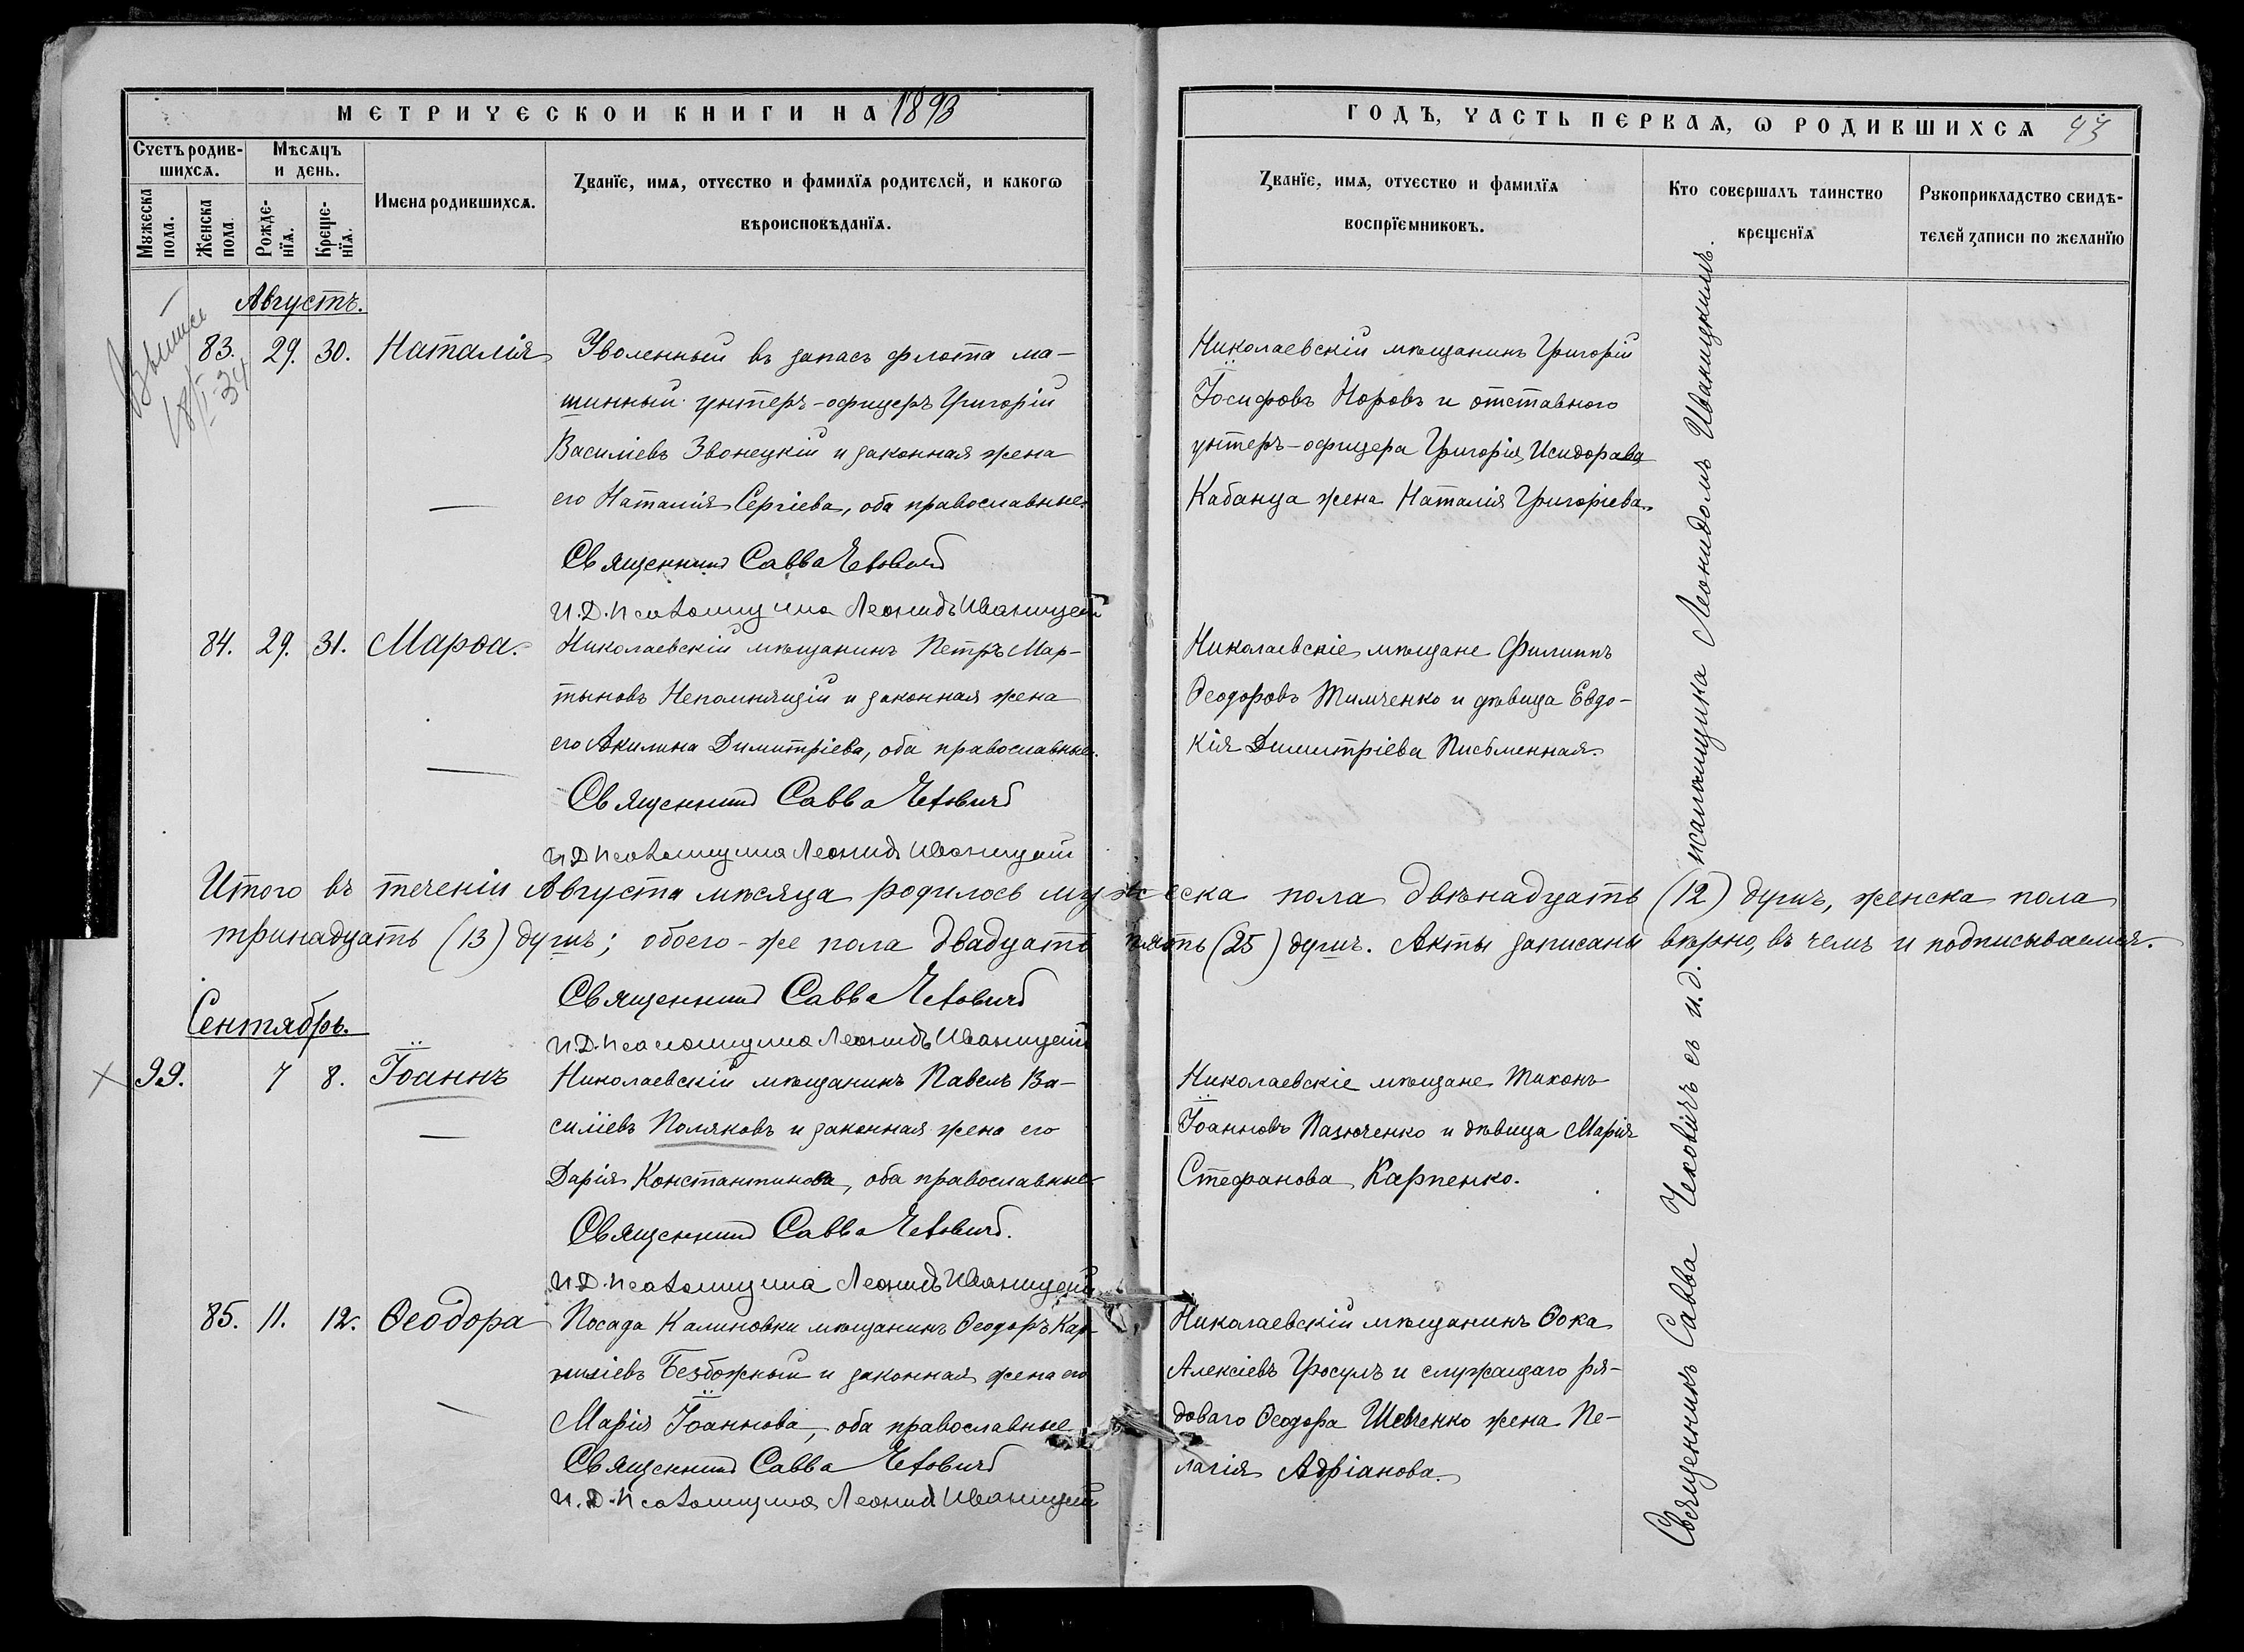 МЕТРИЧЕСКОЙ КНИГИ НА 1893
Счетъ родив-
шихся.
Мѣсяцъ
и день.
Мужеска
пола.
Женска
пола
Рожде-
нїя.
Креще-
нїя.
Имена родившихся.
Званїе, имя, отчество и фамилїя родителей, и какогѡ
вѣроисповѣданїя.
Августъ.
83. 29. 30. Наталія
Уволенный въ запасъ флота ма-
шинный унтеръ-офицеръ Григорій
Василіевъ Звонецкій и законная жена
его Наталія Сергіева, оба православные.
Священникъ Савва Чеховичъ
И.Д. псаломщика Леонидъ Иваницкій
84. 29. 31. Марѳа.
Николаевскій мѣщанинъ Петръ Мар-
тыновъ Непомнящій и законная жена
его Акилина Димитріева, оба православные.
Священникъ Савва Чеховичъ
И.Д. псаломщика Леонидъ Иваницкій
Итого въ теченіи Августа мѣсяца родилось мужеска пола двѣнадцать (12) душъ, женска пола
тринадцать (13) душъ; обоего-же пола двадцать пять (25) душъ. Акты записаны вѣрно, въ чемъ и подписываемся.
Священникъ Савва Чеховичъ
И.Д. псаломщика Леонидъ Иваницкій
Сентябрь.
99. 7 8. Іоаннъ
Николаевскій мѣщанинъ Павелъ Ва-
силіевъ Поляковъ и законная жена его
Дарія Константинова, оба православные
Священникъ Савва Чеховичъ.
И.Д. псаломщика Леонидъ Иваницкій
85. 11. 12. Ѳеодора
Посада Калиновки мѣщанинъ Ѳеодоръ Кар-
ниліевъ Безбожный и законная жена его
Марія Іоаннова, оба православные
Священникъ Савва Чеховичъ
И.Д. псаломщика Леонидъ Иваницкій
ГОДЪ, ЧАСТЬ ПЕРВАЯ, Ѡ РОДИВШИХСЯ 43
Званїе, имя, отчество и фамилїя
воспрїемниковъ.
Кто совершалъ таинство
крещенїя
Рукоприкладство свидѣ-
телей записи по желанїю
Николаевскій мѣщанинъ Григорій
Іосифовъ Норовъ и отставного
унтеръ-офицера Григорія Исидорава
Кабанца жена Наталія Григоріева.
Николаевскіе мѣщане Филиппъ
Ѳеодоровъ Тимченко и дѣвица Евдо-
кія Димитріева Письменная.
Николаевскіе мѣщане Тихонъ
Іоанновъ Пазюченко и дѣвица Марія
Стефанова Карпенко.
Николаевскій мѣщанинъ Ѳока
Алексіевъ Гросулъ и служащаго ря-
доваго Ѳеодора Шевченко жена Пе-
лагія Адріанова.
Священникъ Савва Чеховичъ съ и.д. псаломщика Леонидомъ Иваницкимъ.